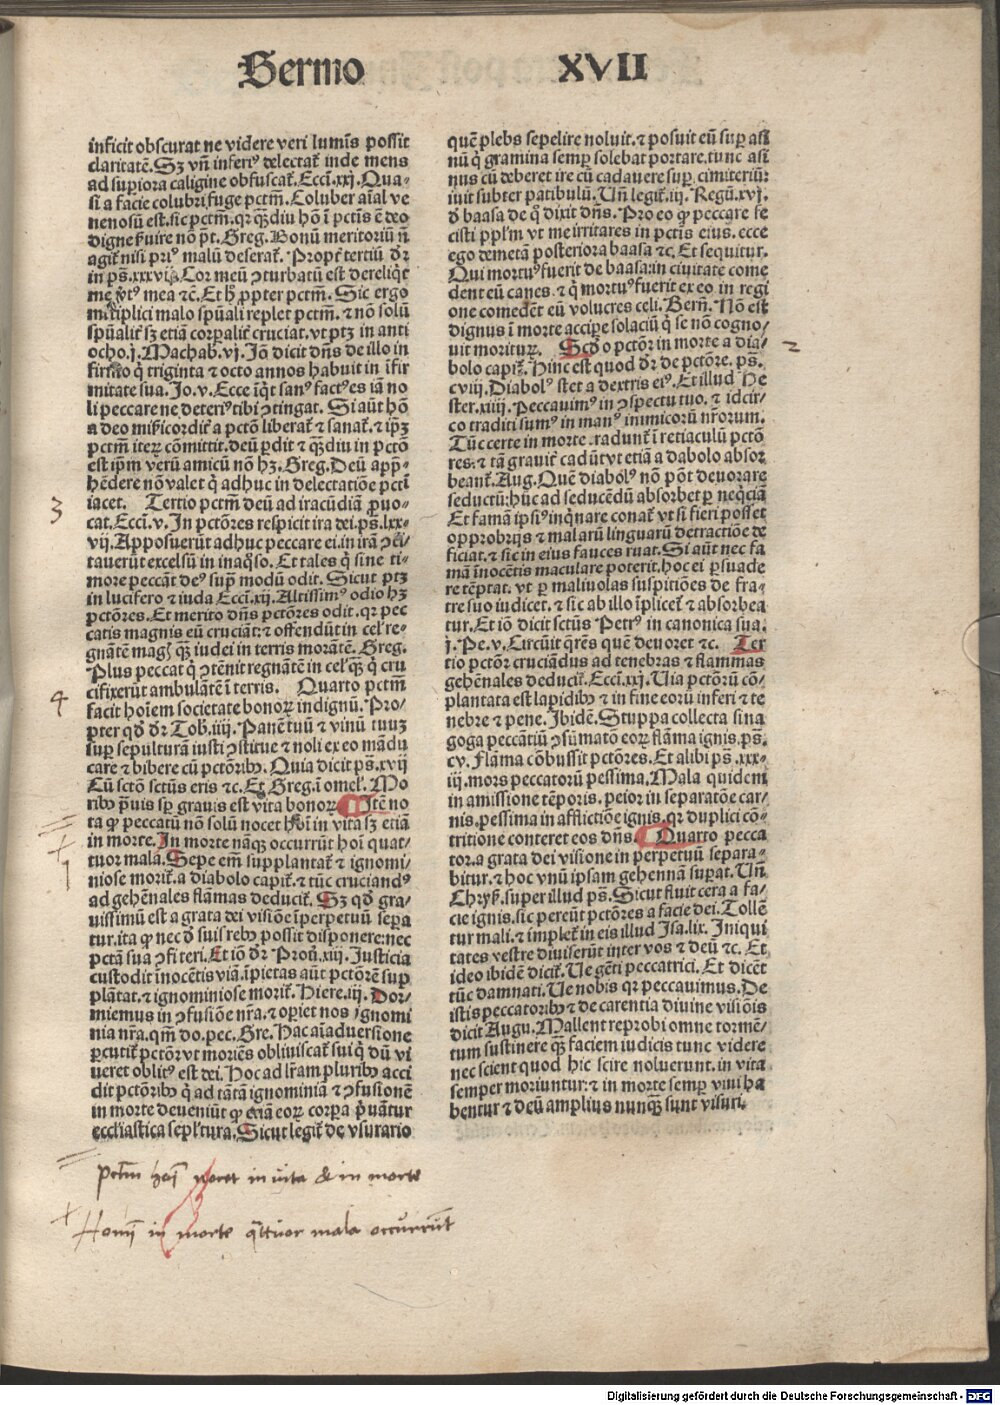 Sermo XVII
inficit obscurat ne videre veri lumīs possit
claritatē. Sꝫ vn̄ inferiꝰ delectat᷑ inde mens
ad supiora caligine obfuscat᷑. Ecci̅. xxj. Qua-
si a facie colubri, fuge pctm̄. Coluber aīal ve
nenosū est. sic pctm̄. qꝛ qꝫdiu hō ī pctīs ē deo
digne ẜuire nō pt̄. Greg. Bonū meritoriū n̄
agit᷑ nisi priꝰ malū deserat᷑. Propt̄ tertiū dr̄
in ps̄. xxxvij. Cor meū ꝯturbatū est dereliqͥt
me v̓tꝰ mea ⁊c̄. Et h̓ ꝓpter pctm̄. Sic ergo
mĺtiplici malo spūali replet pctm̄. ⁊ nō solū
spūalit᷑ sꝫ etiā corꝑalit᷑ cruciat. vt ptꝫ in anti
ocho. j. Machab. vj. Jā dicit dn̄s de illo in
firmo q̓ triginta ⁊ octo annos habuit in īfir
mitate sua. Jo. v. Ecce īqͥt sanꝰ factꝰ es iā no
li peccare ne deteriꝰ tibi ꝯtingat. Si aūt hō
a deo mīẜicordit᷑ a pctō liberat᷑ ⁊ sanat᷑. ⁊ ip̄ꝫ
pctm̄ iteꝝ cōmittit. deū ꝑdit ⁊ qꝫdiu in pctō
est ip̄m verū amicū nō hꝫ. Greg. Deū app̄-
hēdere nō valet q̓ adhuc in delectatiōe pcti̅
iacet. Tertio pctm̄ deū ad iracūdiā ꝓuo-
cat. Ecci̅. v. In pctōres respicit ira dei. ps̄. lxx-
vij. Apposuerūt adhuc peccare ei. in irā ꝯci-
tauerūt excelsū in inaqͦso. Et tales q̓ sine ti-
more peccāt deꝰ supͣ modū odit. Sicut ptꝫ
in lucifero ⁊ iuda Ecci̅. xij. Altissimꝰ odio hꝫ
pctōres. Et merito dn̄s pctōres odit. qꝛ pec
catis magnis eū cruciāt: ⁊ offendūt in cel̓ re-
gnātē magꝭ qꝫ iudei in terris morātē. Greg.
Plus peccat q̓ ꝯtēnit regnātē in cel̓ qꝫ q̓ cru
cifixerūt ambulātē ī terris. Quarto pctm̄
facit hoīem societate bonoꝝ indignū. Pro-
pter qd̓ dr̄ Tob̓. iiij. Panē tuū ⁊ vinū tuuꝫ
sup̄ sepulturā iusti ꝯstitue ⁊ noli ex eo mādu
care ⁊ bibere cū pctōribꝫ. Quia dicit ps̄. xvij
Cū sctō sctūs eris ⁊c. Et Greg. ī omel̓. Mo
ribꝫ p̄uis sp̄ grauis est vita bonoꝝ. ¶ Itē no
ta ꝙ peccatū nō solū nocet hoī in vita sꝫ etiā
in morte. In morte nāqꝫ occurrūt hoī quat-
tuor mala. Sepe em̄ supplantat᷑ ⁊ ignomi-
niose morit᷑. a diabolo capit᷑. ⁊ tūc cruciandꝰ
ad gehēnales flāmas deducit᷑. Sꝫ qd̓ gra-
uissimū est a grata dei visiōe īperpetuū sepa
tur. ita ꝙ nec d̓ suis rebꝫ possit disponere: nec
pctā sua ꝯfiteri. Et iō dr̄ Prou̅. xiij. Justicia
custodit īnocētis viā. īpietas aūt pctōrē sup
plātat. ⁊ ignominiose morit᷑. Hiere. iij. Dor-
miemus in ꝯfusiōe nr̄a. ⁊ opiet nos ignomi
nia nr̄a. qm̄ do. pec. Gre. Hac aīaduersione
ꝑcutit᷑ pctōr vt moriēs obliuiscat᷑ sui q̓ dū vi
ueret oblitꝰ est dei. Hoc ad lr̄am pluribꝫ acci
dit pctōribꝫ q̓ ad tātā ignominiā ⁊ ꝯfusionē
in morte deueniūt ꝙ etiā eoꝝ corꝑa p̓uātur
eccl̓iastica sepl̓tura. Sicut legit᷑ de vsurario
quē plebs sepelire noluit. ⁊ posuit eū suꝑ asi
nū q̓ gramina semꝑ solebat portare. tunc asi
nus cū deberet ire cū cadauere suꝑ cimiteriū:
iuit subter patibulū. Vn̄ legit᷑. iij. Regū. xvj.
d̓ baasa de qͦ dixit dn̄s. Pro eo ꝙ peccare fe
cisti ppl̓m vt me irritares in pctīs eius. ecce
ego demetā posteriora baasa ⁊c. Et sequitur.
Qui mortuꝰ fuerit de baasa: in ciuitate come
dent eū canes. ⁊ q̓ mortuꝰ fuerit ex eo in regi
one comedēt eū volucres celi. Bern̄. Nō est
dignus ī morte accipe solaciū q̓ se nō cogno-
uit morituꝝ. Scd̓o pctōr in morte a dia-
bolo capit᷑. Hinc est quod dr̄ de pctōre. ps̄.
cviij. Diabolꝰ stet a dextris eiꝰ. Et illud He
ster. xiiij. Peccauimꝰ in ꝯspectu tuo. ⁊ idcir-
co traditi sumꝰ in manꝰ inimicorū nr̄orum.
Tūc certe in morte .radunt᷑ ī retiaculū pctō
res. ⁊ tā grauit᷑ cadūt vt etiā a dabolo absor
beant᷑. Aug. Quē diabolꝰ nō pōt deuorare
seductū: hūc ad seducēdū absorbet ꝑ neqͥciā
Et famā ipsiꝰ inqͥnare conat᷑ vt si fieri posset
opprobrijs ⁊ malarū linguarū detractiōe de
ficiat. ⁊ sic in eius fauces ruat. Si aūt nec fa
mā īnocētis maculare poterit. hoc ei ꝑsuade
re tēptat. vt ꝑ maliuolas suspitiōes de fra-
tre suo iudicet. ⁊ sic ab illo īplicet᷑ ⁊ absorbea
tur. Et iō dicit sctūs Petrꝰ in canonica sua.
j. Pe. v. Circūit qr̄es quē deuoret ⁊c. Ter
tio pctōr cruciādus ad tenebras ⁊ flammas
gehēnales deducit᷑. Ecci̅. xxj. Via pctōrū cō-
plantata est lapidibꝫ ⁊ in fine eorū inferi ⁊ te
nebre ⁊ pene. Ibidē. Stuppa collecta sina
goga peccātiū ꝯsūmatō eoꝝ flāma ignis. ps̄.
cv. Flāma cōbussit pctōres. Et alibi ps̄. xxx-
iij. mors peccatorū pessima. Mala quidem
in amissione tēporis. peior in separatōe car-
nis. pessima in afflictiōe ignis. qꝛ duplici cō-
tritione conteret eos dn̄s. ¶ Quarto pecca
tor. a grata dei visione in perpetuū separa-
bitur. ⁊ hoc vnū ipsam gehennā suꝑat. Vn̄
Chryẜ. super illud ps̄. Sicut fluit cera a fa-
cie ignis. sic pereūt pctōres a facie dei. Tollē
tur mali. ⁊ implet᷑ in eis illud Isa. lix. Iniqui
tates vestre diuiserūt inter vos ⁊ deū ⁊c. Et
ideo ibidē dicit᷑. Ve gēti peccatrici. Et dicēt
tūc damnati. Ve nobis qꝛ peccauimus. De
istis peccatoribꝫ ⁊ de carentia diuine visiōis
dicit Augu. Mallent reprobi omne tormē-
tum sustinere qꝫ faciem iudicis tunc videre
nec scient quod hic scire noluerunt. in vita
semper moriuntur: ⁊ in morte semꝑ viui ha
bentur ⁊ deū amplius nunqꝫ sunt visuri.
3
4
1
2
Pctm̄ hoī nocet in vita & in morte
Homī in morte qͣttuor mala occurrūt
Digitalisierung gefördert durch die Deutsche Forschungsgemeinschaft - DFG